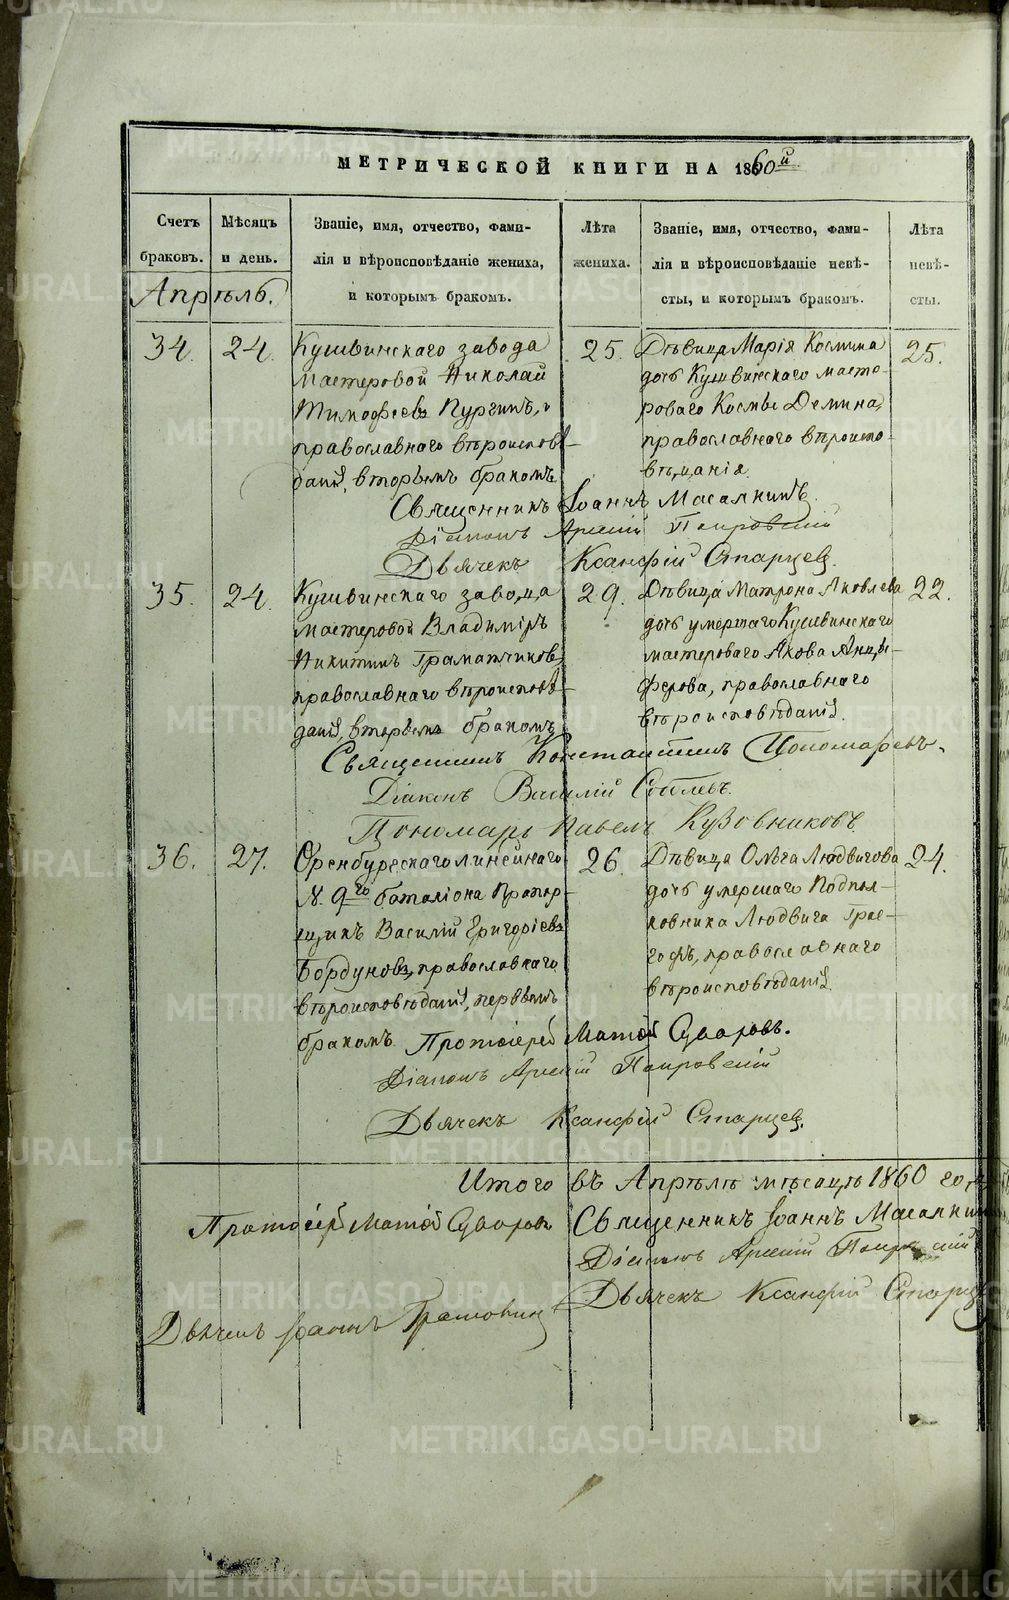 МЕТРИЧЕСКОЙ КНИГИ НА 1860й
Счетъ браковъ.
Мѣсяцъ и день.
Званіе, имя, отчество, фами-
лія и вѣроисповѣданіе жениха,
и которымъ бракомъ.
Лѣта жениха.
Званіе, имя, отчество, фами-
лія и вѣроисповѣданіе невѣ-
сты, и которымъ бракомъ.
Лѣта невѣ-
сты.
Апрѣль.
34. 24.
Кушвинскаго завода
мастеровой Николай
Тимофѣевъ Пургинъ,
православнаго вѣроисповѣ-
данія, вторымъ бракомъ
25.
Дѣвица Марія Космина
дочь Кушвинскаго масте-
роваго Космы Демина,
православнаго вѣроиспо-
вѣданія
25.
Священникъ Іоаннъ Масалкинъ.
Діаконъ Арсеній Покровскій
Дьячекъ Ксанфій Старцевъ.
35. 24.
Кушвинскаго завода
мастеровой Владиміръ
Никитинъ Граматчиковъ,
православнаго вѣроисповѣ-
данія, вторымъ бракомъ
29.
Дѣвица Матрона Яковлева
дочь умершаго Кушвинскаго
мастероваго Якова Анци-
ферова, православнаго
вѣроисповѣданія.
22.
Священникъ Константинъ Пономаревъ.
Діаконъ Василій
Пономарь Павелъ Кузовниковъ
36. 27.
Оренбургскаго линейнаго
№ 9го баталіона Прапор-
щикъ Василій Григорьевъ
Бордуновъ, православнаго
вѣроисповѣданія, первымъ
бракомъ.
26.
Дѣвица Ольга Людвигова
дочь умершаго Подпол-
ковника Людвига Грас-
гофъ, православнаго
вѣроисповѣданія.
24.
Протоіерей Матфій Суворовъ.
Діаконъ Арсеній Покровскій
Дьячекъ Ксанфій Старцевъ.
Итого въ Апрѣлѣ мѣсяцѣ 1860 го
Протоіерей Матфій Суворовъ
Священникъ Іоаннъ Масалкин
Діаконъ Арсеній Покровскій
Дьячекъ Ксанфій Старце
Дьячекъ Іоаннъ
METRIKI.GASO-URAL.RU